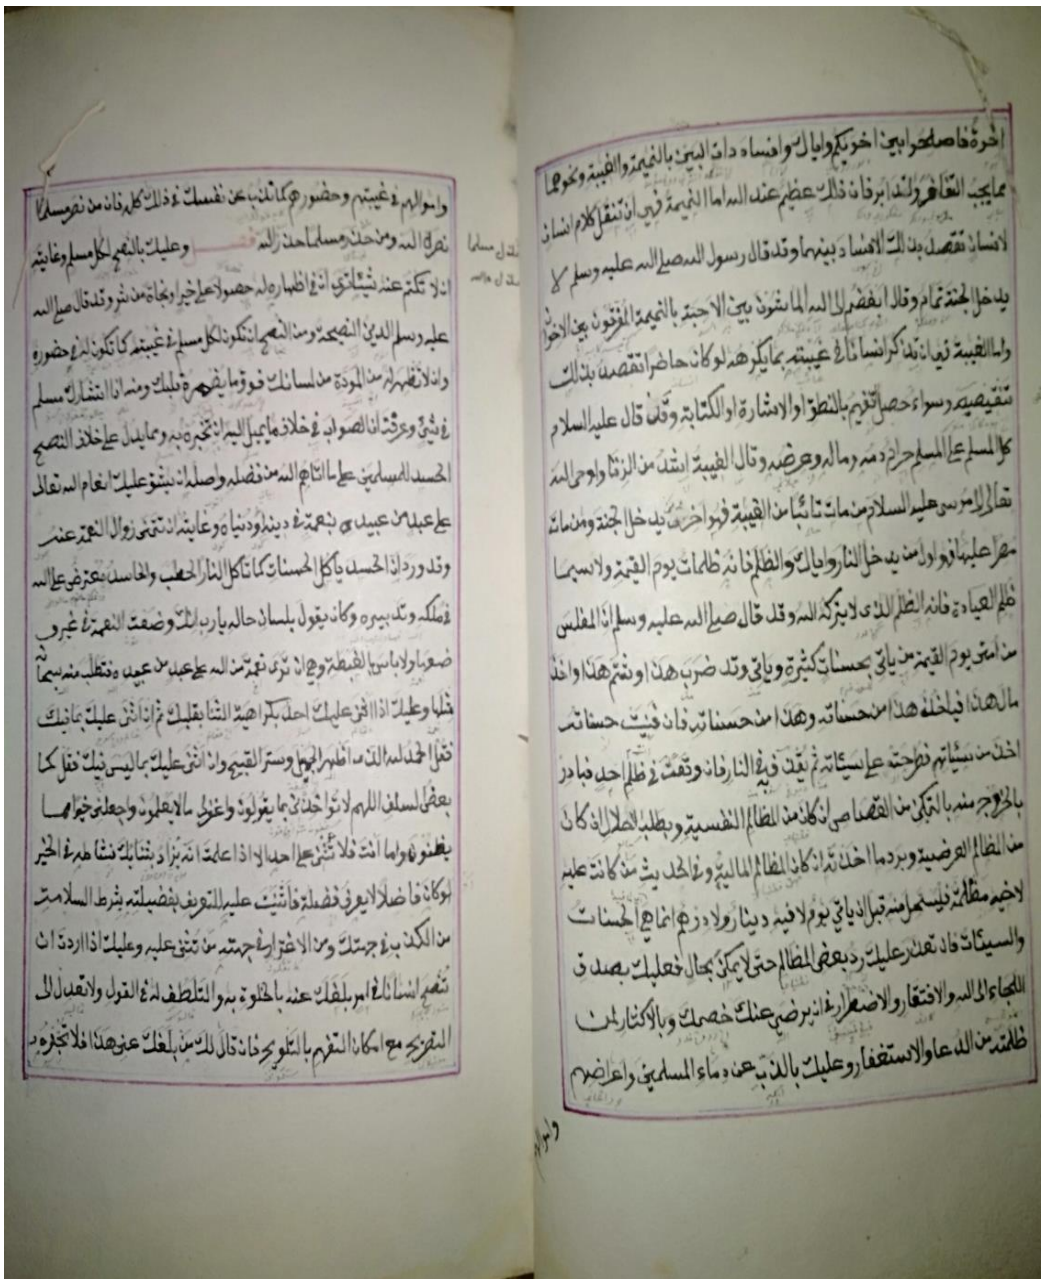 اخوة فاصلحوا بين اخويكم واياك وافساد ذات البين بالنميمة والغيبة ونحوهما
مما يجب التنافر والتدابر فان ذلك عظيم عند الله اما النميمة فهي ان تنقل كلام انسان
لانسان تقصد بذلك الافساد بينهما وقد قال رسول الله صلى الله عليه وسلم لا
يدخل الجنة نمام وقال ابغضكم الى الله الماشون بين الاحبة بالنميمة المفرقون بين الاخوان
واما الغيبة فهي ان تذكر انسانا في غيبته بما يكرهه لو كان حاضرا تقصد بذلك
تنقيصه وسواء حصل التفهيم بالنطق او الاشارة او الكتابة وقد قال عليه السلام
كل المسلم على المسلم حرام دمه وماله وعرضه وقال الغيبة اشد من الزنا واوحى الله
تعالى الى موسى عليه السلام من مات تائبا من الغيبة فهو اخر من يدخل الجنة ومن مات
مصرا عليها فهو اول من يدخل النار واياك والظلم فانه ظلمات يوم القيمة ولا سيما
ظلم العبادة فانه الظلم الذي لا يتركه الله وقد قال صلى الله عليه وسلم ان المفلس
من امتى يوم القيمة من ياتي بحسنات كثيرة وياتي وقد ضرب هذا وشتم هذا واخذ
مال هذا فياخذ هذا من حسناته وهذا من حسناته فان فنيت حسناته
اخذ من سيئاتهم فطرحته على سيئاته ثم يقذف في النار فان وقعت في ظلم احد فبادر
بالخروج منه بالتمكين من القصاص ان كان من المظالم النفسية وبطلب الحلال ان كان
من المظالم العرضية وبرد ما اخذته ان كان المظالم المالية وفي الحديث من كانت عليه
لاخيه مظلمة فليستحل منه قبل ان ياتي يوم لا فيه دينار ولا درهم انما هي الحسنات
والسيئات فان تعذر عليك رد بعض المظالم حتى لا يمكن بحال فعليك بصدق
اللجاء الى الله والافتقار والاضطرار في ان يرضي عنك خصمك وبالاكثار لمن
ظلمته من الدعاء والاستغفار وعليك بالذب عن دماء المسلمين واعراضهم
واموالهم
واموالهم في غيبتهم وحضورهم كما تذب عن نفسك في ذلك كله فان من نصر مسلما
نصره الله ومن خذل مسلما خذله الله فصل وعليك بالنصح لكل مسلم وغايته
ان لا تكتم عنه شيئا ترى ان في اظهاره له حصولا على خير او نجاة من شر وقد قال صلى الله
عليه وسلم الدين النصيحة ومن النصح ان تكون لكل مسلم في غيبته كما تكون له في حضوره
وان لا تظهر له من المودة من لسانك فوق ما يضمره قلبك ومنه اذا استشارك مسلم
في شئ وعرفت ان الصواب في خلاف ما يميل اليه ان تخبره به ومما يدل على خلاف النصح
الحسد للمسلمين على ما اتاهم الله من فضله واصله ان يشق عليك انعام الله تعالى
على عبد من عبيده بنعمة في دينه او دنياه وغايته ان تتمنى زوال النعمة عنه
وقد ورد ان الحسد ياكل الحسنات كما تاكل النار الحطب والحاسد يعترض على الله
في ملكه وتدبيره وكانه يقول بلسان حاله يا رب انك وضعت النعمة في غير
موضعها ولا باس بالغبطة وهي ان ترى نعمة من الله على عبد من عبيده فتطلب منه سبحانه
مثلها وعليك اذا اثنى عليك احد بكراهية الثنا بقلبك ثم ان اثنى عليك بما فيك
فقل الحمد لله الذي اظهر الجميل وستر القبيح وان اثنى عليك بما ليس فيك فقل كما
بعض السلف اللهم لا تواخذني بما يقولون واغفر لي ما لا يعلمون واجعلني خيرا مما
يظنون واما انت فلا تثنى على احد الا اذا علمت انه يزاد بثنائك نشاطه في الخير
لو كان فاضلا لا يعرف فضله فاثنيت عليه للتعريف بفضيلته بشرط السلامة
من الكذب في جهتك ومن الاغترار في جهته من تثنى عليه وعليك اذا اردت ان
تنصح انسانا في امر بلغك عنه بالخلوة به والتلطف له في القول ولا تعدل الى
التصريح مع امكان التفهيم بالتلويح فان قال لك من بلغك عنى هذا فلا تخبره به